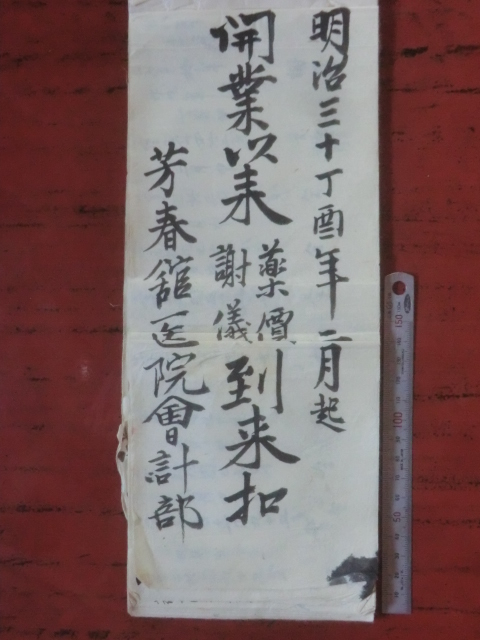 明治三十丁酉年二月起
開業以来薬價謝儀到来扣
芳春舘医院會計部
50
100
150